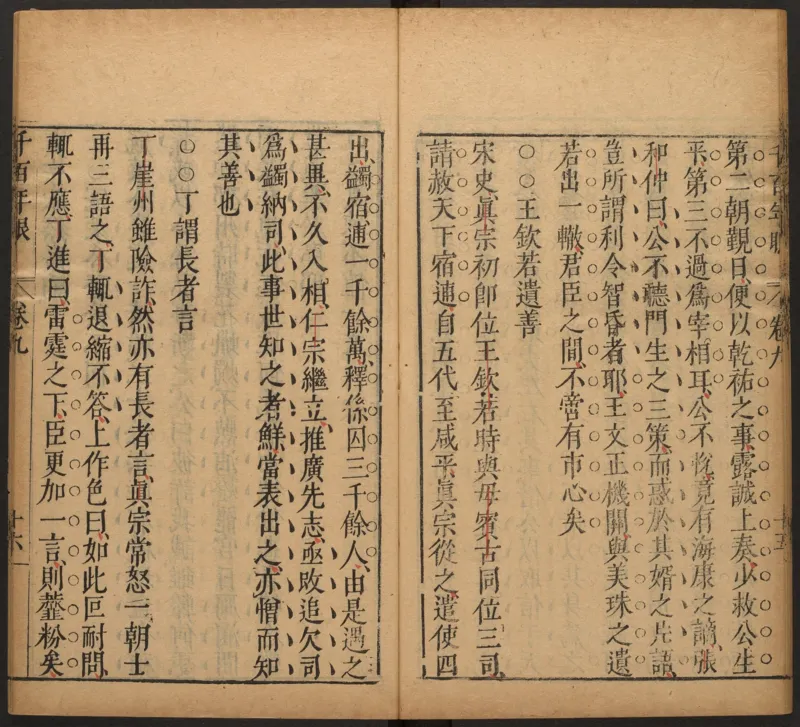 千百年眼 卷九 十五
第二朝覲日便以乾祐之事露誠上奏少救公生
平第三不過爲宰相耳公不悅竟有海康之謫張
和仲曰公不聽門生之三策而惑於其婿之片語
豈所謂利令智昏者耶王文正機關與美珠之遺
若出一轍君臣之間不啻有市心矣
○○王欽若遺善
宋史眞宗初卽位王欽若時與毋賓古同位三司
請赦天下宿逋自五代至咸平眞宗從之遣使四
出蠲宿逋一千餘萬釋係囚三千餘人由是遇之
甚異不久入相仁宗繼立推廣先志亟敗追欠司
爲蠲納司此事世知之者鮮當表出之亦憎而知
其善也
○○丁謂長者言
丁崖州雖險詐然亦有長者言眞宗常怒一朝士
再三語之丁輒退縮不答上作色曰如此叵耐問
輒不應丁進曰雷霆之下臣更加一言則虀粉矣
千百年眼 卷九 十六